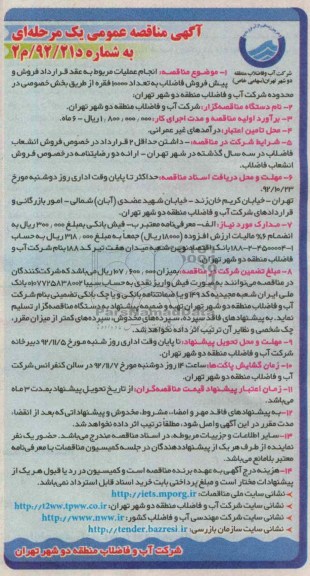 آگهی مناقصه عمومی یک مرحله‌ای
به شماره ۹۲/۲۱د/۲م
شرکت آب و فاضلاب منطقه
دو شهر تهران (سهامی خاص)
۱- موضوع مناقصه: انجام عملیات مربوط به عقد قرارداد فروش و
پیش فروش فاضلاب به تعداد ۱۰۰۰۰ فقره از طریق بخش خصوصی در
محدوده شرکت آب و فاضلاب منطقه دو شهر تهران.
۲- نام دستگاه مناقصه‌گزار: شرکت آب و فاضلاب منطقه دو شهر تهران.
۳- برآورد اولیه مناقصه و مدت اجرای کار: ۱/۸۰۰/۰۰۰/۰۰۰ ریال - ۶ ماه.
۴- محل تامین اعتبار: درآمدهای غیر عمرانی.
۵- شرایط شرکت در مناقصه: - داشتن حداقل ۲ قرارداد در خصوص فروش انشعاب
فاضلاب در سه سال گذشته در شهر تهران - ارائه دو رضایتنامه درخصوص فروش
انشعاب فاضلاب.
۶- مهلت و محل دریافت اسناد مناقصه: حداکثر تا پایان وقت اداری روز دوشنبه مورخ
۹۲/۱۰/۲۳
تهران - خیابان کریم خان زند - خیابان شهید عضدی (آبان) شمالی - امور بازرگانی و
قراردادهای شرکت آب و فاضلاب منطقه دو شهر تهران.
۷- مدارک مورد نیاز: الف- معرفی‌نامه معتبر ب- فیش بانکی بمبلغ ۳۰۰/۰۰۰ ریال به
انضمام ۶٪ مالیات ارزش افزوده (۱۸۰۰۰ ریال) جمعا به مبلغ ۳۱۸/۰۰۰ ریال به حساب
بانک اقتصاد نوین شعبه میدان هفت تیر کد ۱۸۸ بنام شرکت آب و
فاضلاب منطقه دو شهر تهران.
۸- مبلغ تضمین شرکت در مناقصه: بمیزان ۱۰۷/۶۰۰/۰۰۰ ریال می‌باشد که شرکت‌کنندگان
در مناقصه می‌توانند به صورت فیش واریز نقدی به حساب سیبا ۰۱۰۷۷۲۵۸۳۸۰۰۲ بانک
ملی ایران شعبه مجیدیه کد ۱۴۳ و یا ضمانتنامه بانکی و یا چک بانکی تضمینی بنام شرکت
آب و فاضلاب منطقه دو شهر تهران تهیه و ضمیمه پیشنهاد به دستگاه مناقصه‌گزار تسلیم
نماید. به پیشنهادهای فاقد سپرده، سپرده‌های مخدوش، سپرده‌های کمتر از میزان مقرر،
چک شخصی و نظایر آن ترتیب اثر داده نخواهد شد.
۹- مهلت و محل تحویل پیشنهاد: تا پایان وقت اداری روز شنبه مورخ ۹۲/۱۱/۵ دبیرخانه
شرکت آب و فاضلاب منطقه دو شهر تهران.
۱۰- زمان گشایش پاکت‌ها: ساعت ۱۴ روز دوشنبه مورخ ۹۲/۱۱/۷ در سالن کنفرانس شرکت
آب و فاضلاب منطقه دو شهر تهران.
۱۱- زمان اعتبار پیشنهاد قیمت مناقصه‌گران: از تاریخ تحویل پیشنهاد بمدت ۳ ماه
می‌باشد.
۱۲- به پیشنهادهای فاقد مهر و امضاء، مشروط، مخدوش و پیشنهاداتی که بعد از انقضاء
مدت مقرر در این آگهی واصل شود، مطلقا ترتیب اثر داده نخواهد شد.
۱۳- سایر اطلاعات و جزییات مربوطه، در اسناد مناقصه مندرج می‌باشد. حضور یک نفر
نماینده از طرف هر یک از پیشنهاددهندگان در جلسه کمیسیون مناقصات با معرفی‌نامه
معتبر بلامانع می‌باشد.
۱۴- هزینه درج آگهی به عهده برنده مناقصه است و کمیسیون در رد یا قبول هر یک از
پیشنهادات مختار است و مبلغ پرداختی بابت خرید اسناد قابل استرداد نمی‌باشد.
نشانی سایت ملی مناقصات: http://iets.mporg.ir
نشانی سایت شرکت آب و فاضلاب منطقه دو شهر تهران: http://t2ww.tpww.co.ir
نشانی سایت شرکت مهندسی آب و فاضلاب کشور: http://www.nww.ir
نشانی سایت سازمان بازرسی: http://tender.bazresi.ir
شرکت آب و فاضلاب منطقه دو شهر تهران